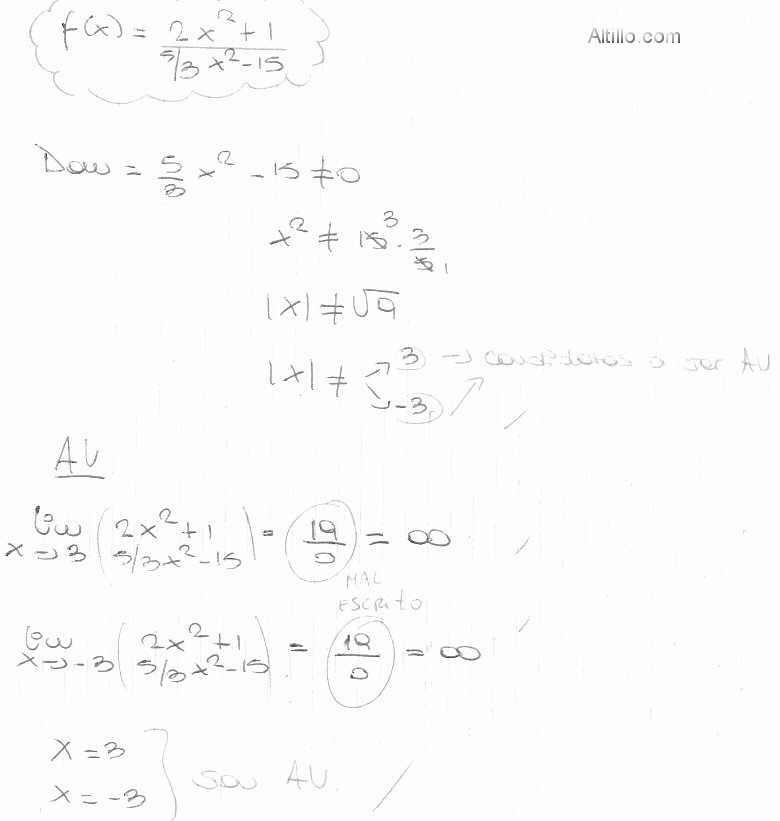 f(x) = 2x²+1 / 5/3 x²-15
Altillo.com
Dom = 5/3 x² - 15 ≠ 0
x² ≠ 15³ · 3/5 1
|x| ≠ √9
|x| ≠ 3 → candidatos a ser AV
-3
AV
lim x→3 (2x²+1 / 5/3x²-15) = 19/0 = ∞
MAL
ESCRITO
lim x→-3 (2x²+1 / 5/3x²-15) = 19/0 = ∞
x = 3
x = -3 } son AV.